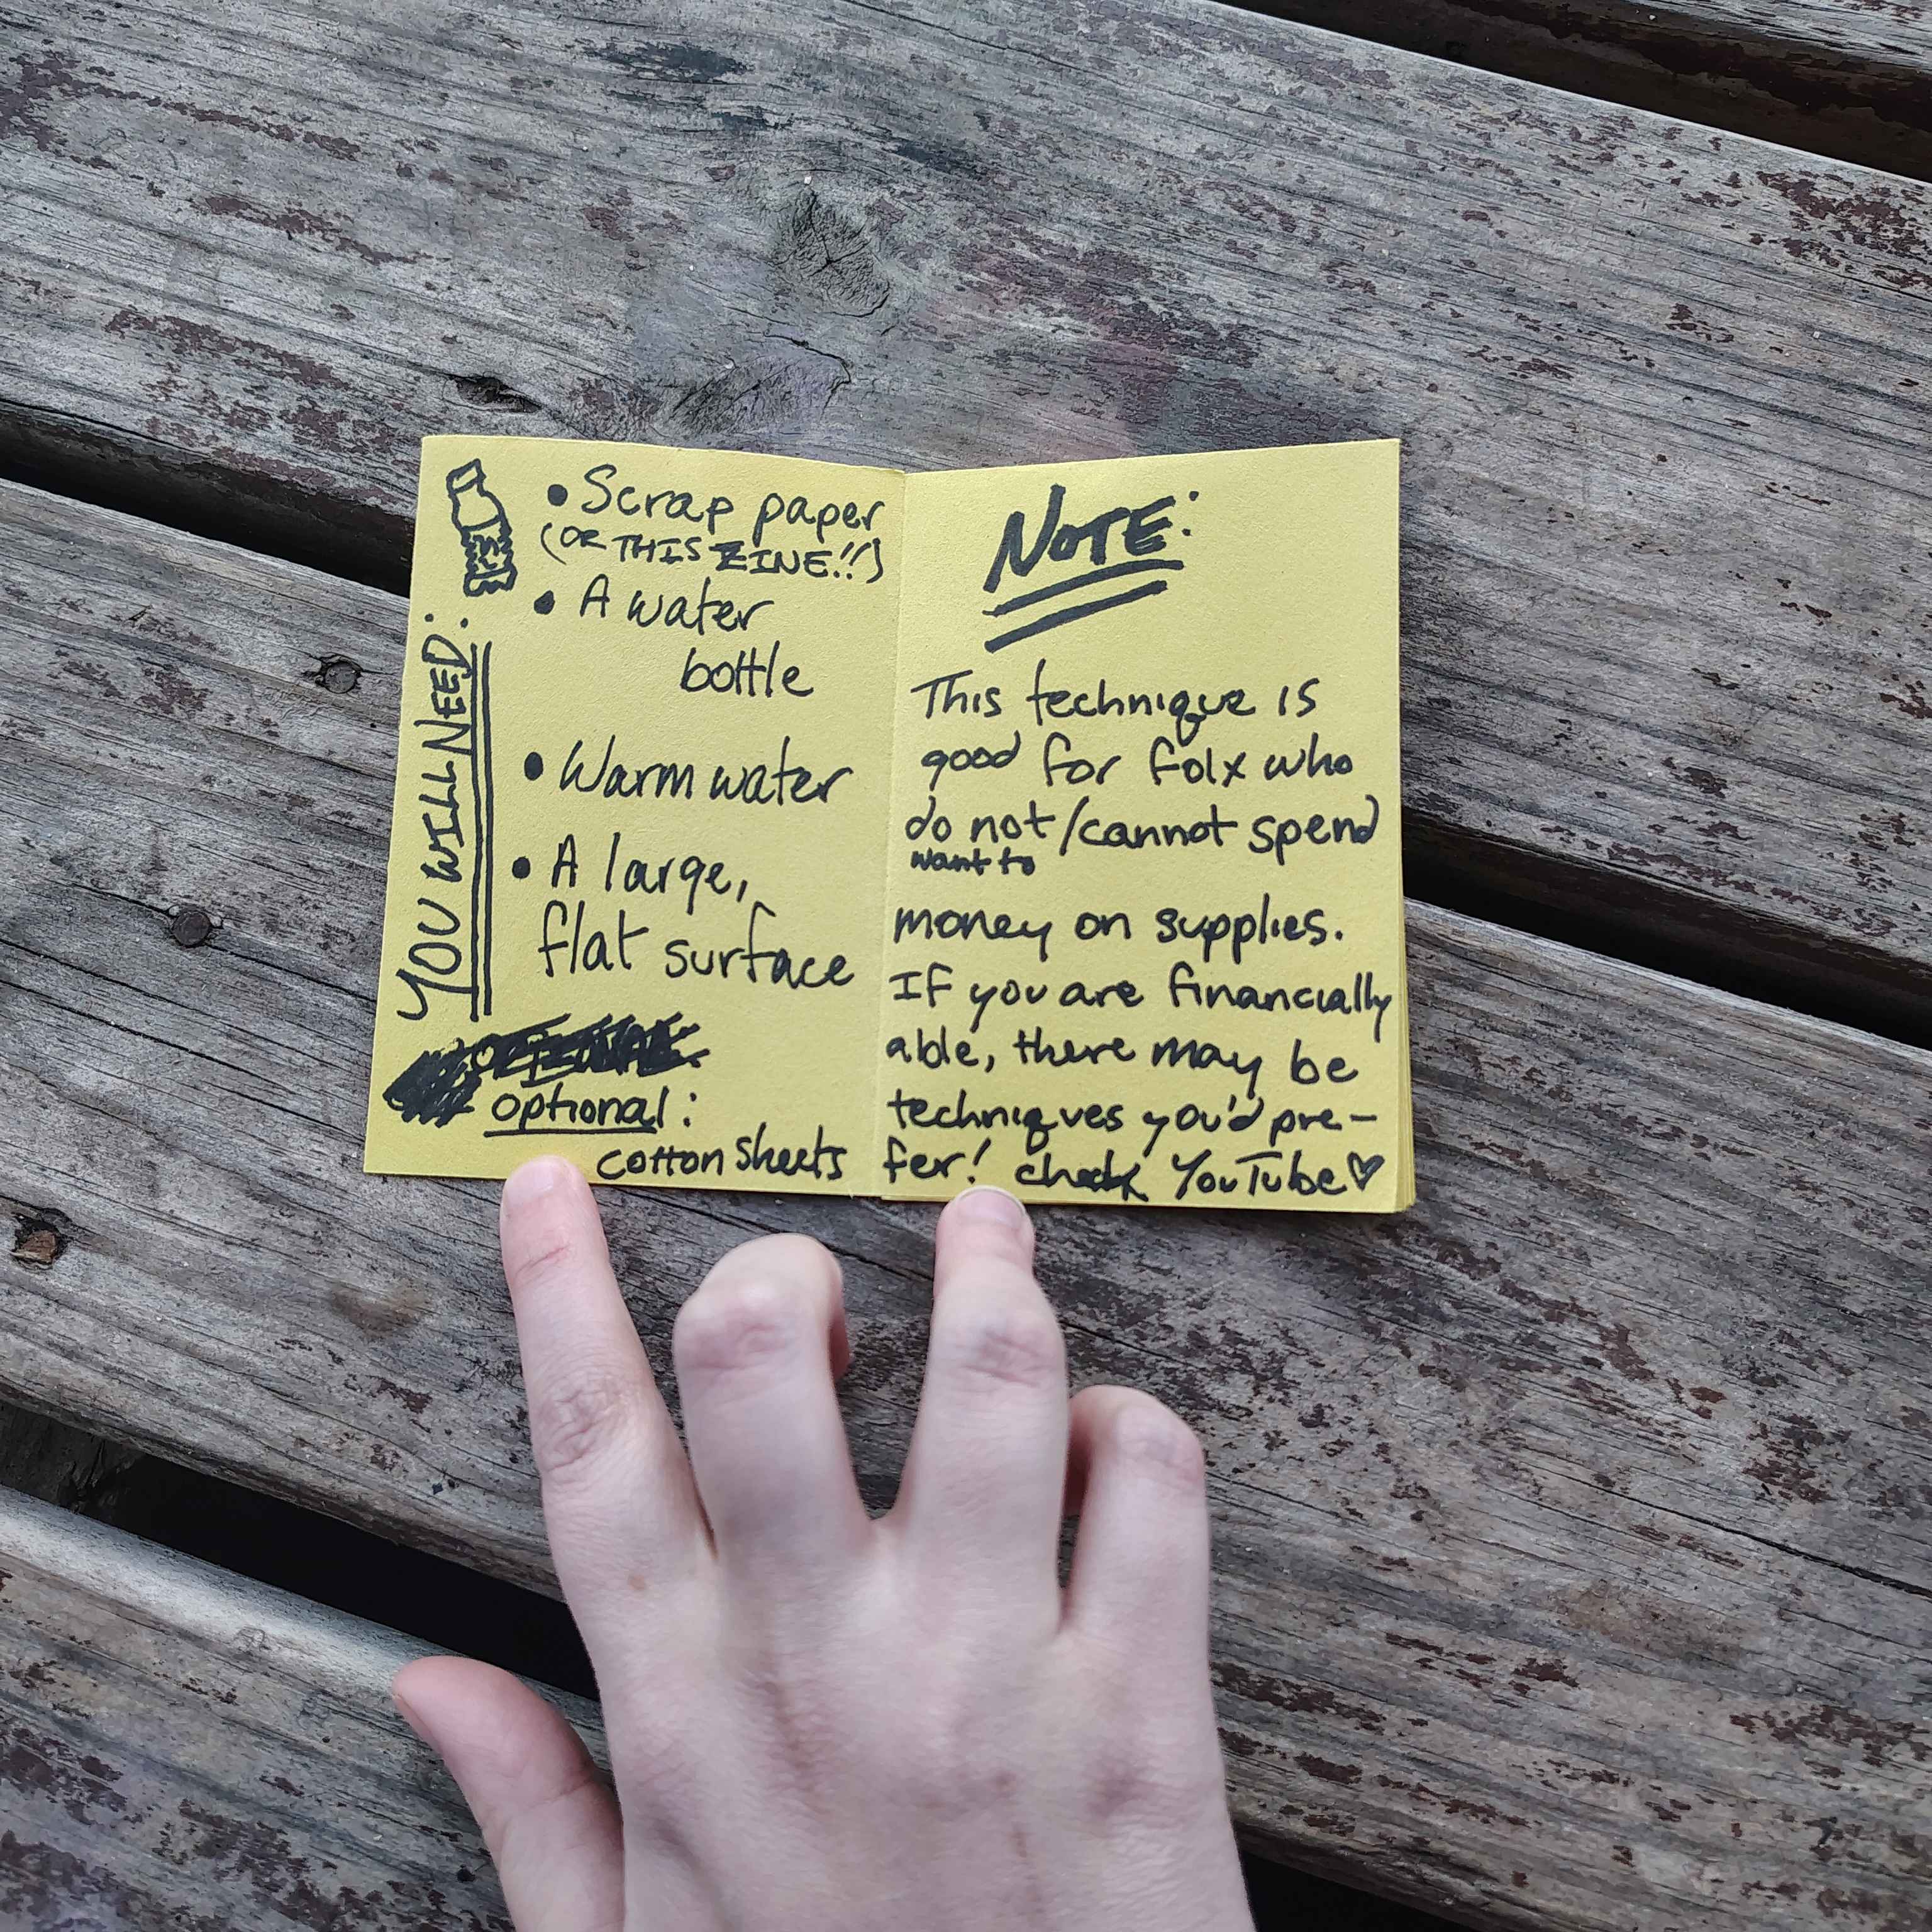 YOU WILL NEED:
• Scrap paper
(OR THIS ZINE!!)
• A water
bottle
• Warm water
• A large,
flat surface
optional:
cotton sheets
NOTE:
This technique is
good for folx who
do not/cannot spend
want to
money on supplies.
If you are financially
able, there may be
techniques you'd pre-
fer! check YouTube♡